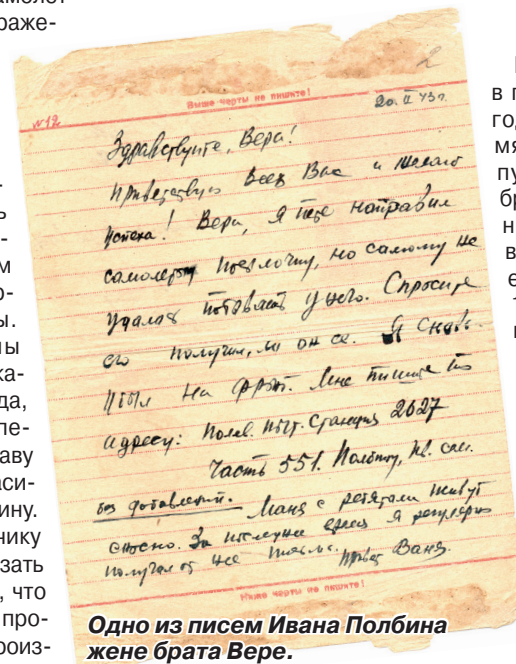 амолет
раже-
ь
м
ы.
ка-
да,
пе-
аву
аси-
ину.
нику
зать
, что
про-
роиз-
2
Выше черты не пишите!
№12 20.II 43г.
Здравствуйте, Вера!
Приветствую Всех Вас и желаю
успеха! Вера, я Пете направил
самолетом посылочку, но самому не
удалось побывать у него. Спросите
его получил, ли он ее. Я снова
на фронт. Мне пишите по
адресу: Полев. Почт. Станция 2627
Часть 551. Полбину, Ив. Сем.
без добавлений. Маня с ребятами живут
сносно. За последнее время я регулярно
получал от нее письма. Привет Ваня.
Ниже черты не пишите!
Одно из писем Ивана Полбина
жене брата Вере.
в п
год
мя
пу
бр
н
в
е